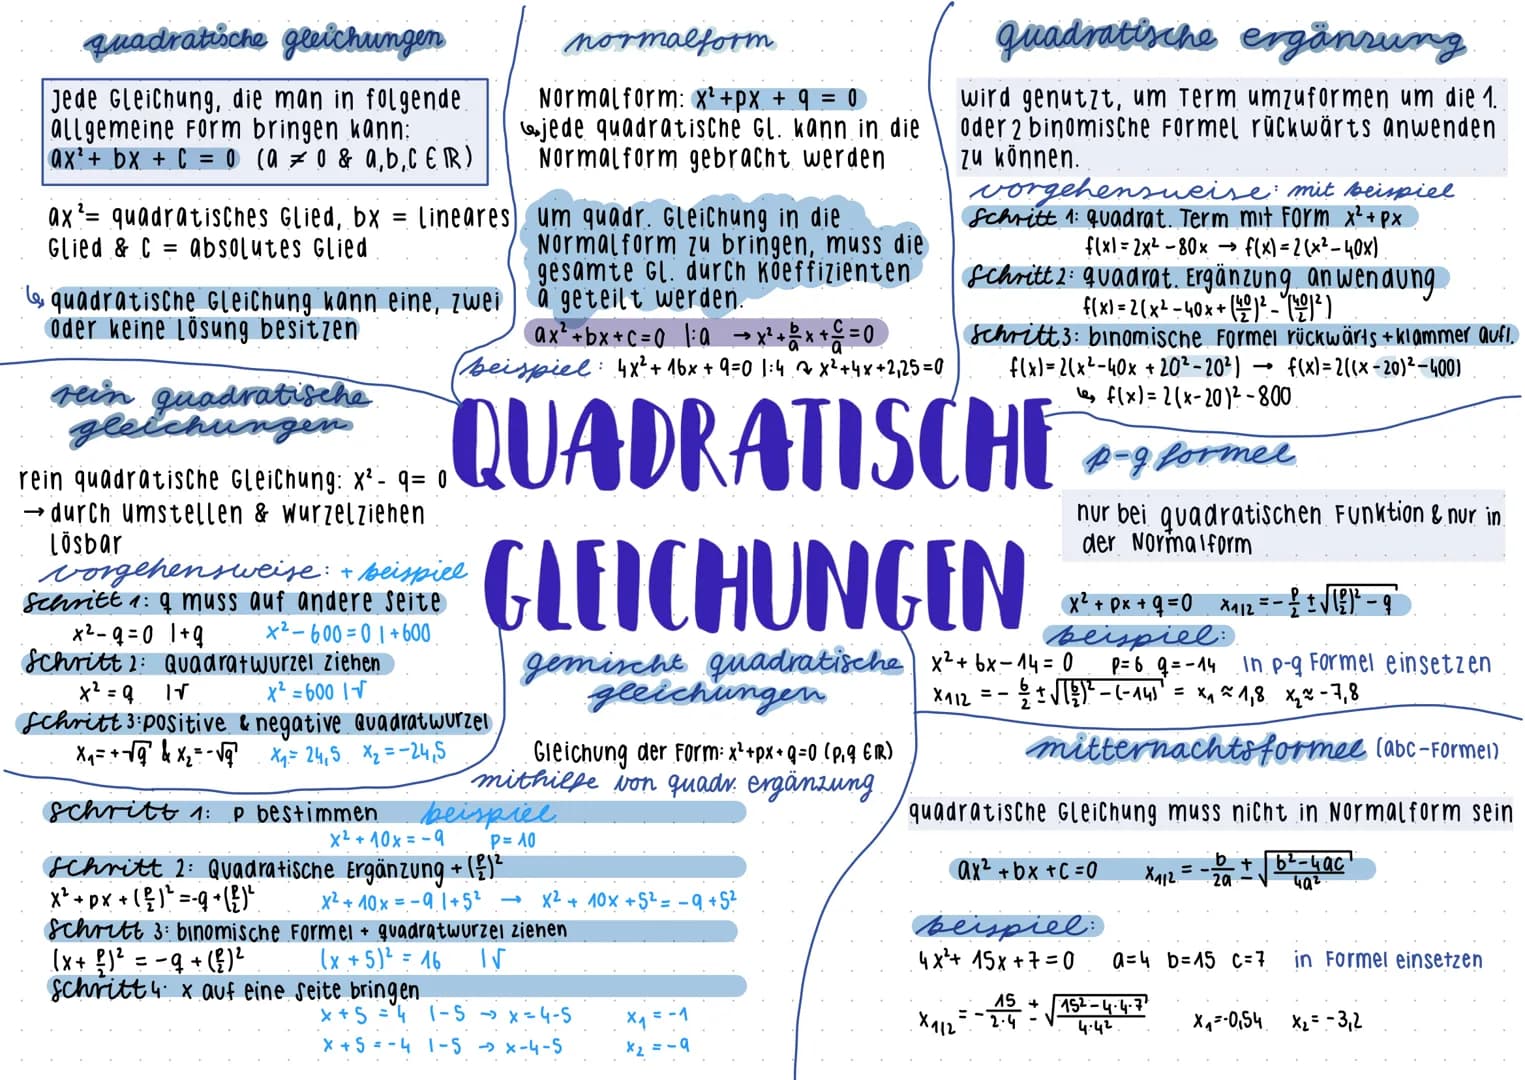 quadratische gleichungen
Jede Gleichung, die man in folgende
allgemeine Form bringen kann:
ax² + bx + c = 0 (a ≠ 0 & a,b,c ∈ ℝ)
ax² = quadratisches Glied, bx = lineares
Glied & c = absolutes Glied
↳ quadratische Gleichung kann eine, zwei
oder keine Lösung besitzen
normalform
Normalform: x² + px + q = 0
↳ jede quadratische Gl. kann in die
Normalform gebracht werden
um quadr. Gleichung in die
Normalform zu bringen, muss die
gesamte Gl. durch Koeffizienten
a geteilt werden.
ax² + bx + c = 0 |:a → x² + b/a x + c/a = 0
beispiel: 4x² + 16x + 9 = 0 |:4 ↷ x² + 4x + 2,25 = 0
quadratische ergänzung
wird genutzt, um Term umzuformen um die 1.
oder 2 binomische Formel rückwärts anwenden
zu können.
vorgehensweise: mit beispiel
Schritt 1: quadrat. Term mit Form x² + px
f(x) = 2x² - 80x → f(x) = 2(x² - 40x)
Schritt 2: quadrat. Ergänzung anwendung
f(x) = 2(x² - 40x + (40/2)² - (40/2)²)
Schritt 3: binomische Formel rückwärts + klammer aufl.
f(x) = 2(x² - 40x + 20² - 20²) → f(x) = 2((x - 20)² - 400)
↳ f(x) = 2(x - 20)² - 800
QUADRATISCHE
GLEICHUNGEN
rein quadratische
gleichungen
rein quadratische Gleichung: x² - q = 0
→ durch umstellen & wurzelziehen
lösbar
vorgehensweise: + beispiel
Schritt 1: q muss auf andere Seite
x² - q = 0 | + q x² - 600 = 0 | + 600
Schritt 2: Quadratwurzel ziehen
x² = q | √ x² = 600 | √
Schritt 3: positive & negative Quadratwurzel
x₁ = +√q & x₂ = -√q x₁ = 24,5 x₂ = -24,5
p-q formel
nur bei quadratischen Funktion & nur in
der Normalform
x² + px + q = 0 x₁|₂ = - p/2 ± √((p/2)² - q)
beispiel:
x² + 6x - 14 = 0 p = 6 q = -14 in p-q Formel einsetzen
x₁|₂ = - 6/2 ± √((6/2)² - (-14)) = x₁ ≈ 1,8 x₂ ≈ -7,8
gemischt quadratische
gleichungen
Gleichung der Form: x² + px + q = 0 (p,q ∈ ℝ)
mithilfe von quadr. ergänzung
Schritt 1: p bestimmen beispiel
x² + 10x = -9 p = 10
Schritt 2: Quadratische Ergänzung + (p/2)²
x² + px + (p/2)² = -q + (p/2)² x² + 10x = -9 | + 5² → x² + 10x + 5² = -9 + 5²
Schritt 3: binomische Formel + quadratwurzel ziehen
(x + p/2)² = -q + (p/2)² (x + 5)² = 16 | √
Schritt 4: x auf eine Seite bringen
x + 5 = 4 | - 5 → x = 4 - 5 x₁ = -1
x + 5 = -4 | - 5 → x - 4 - 5 x₂ = -9
mitternachtsformel (abc-Formel)
quadratische Gleichung muss nicht in Normalform sein
ax² + bx + c = 0 x₁|₂ = - b/2a ± √((b² - 4ac)/4a²)
beispiel:
4x² + 15x + 7 = 0 a = 4 b = 15 c = 7 in Formel einsetzen
x₁|₂ = - 15/2·4 ± √((15² - 4·4·7)/4·4²) x₁ = -0,54 x₂ = -3,2